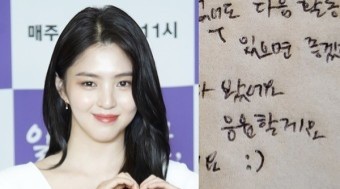 매주
11시
너도 다음 활동
수 있으면 좋겠
왔어요
응원할게요
요 :)